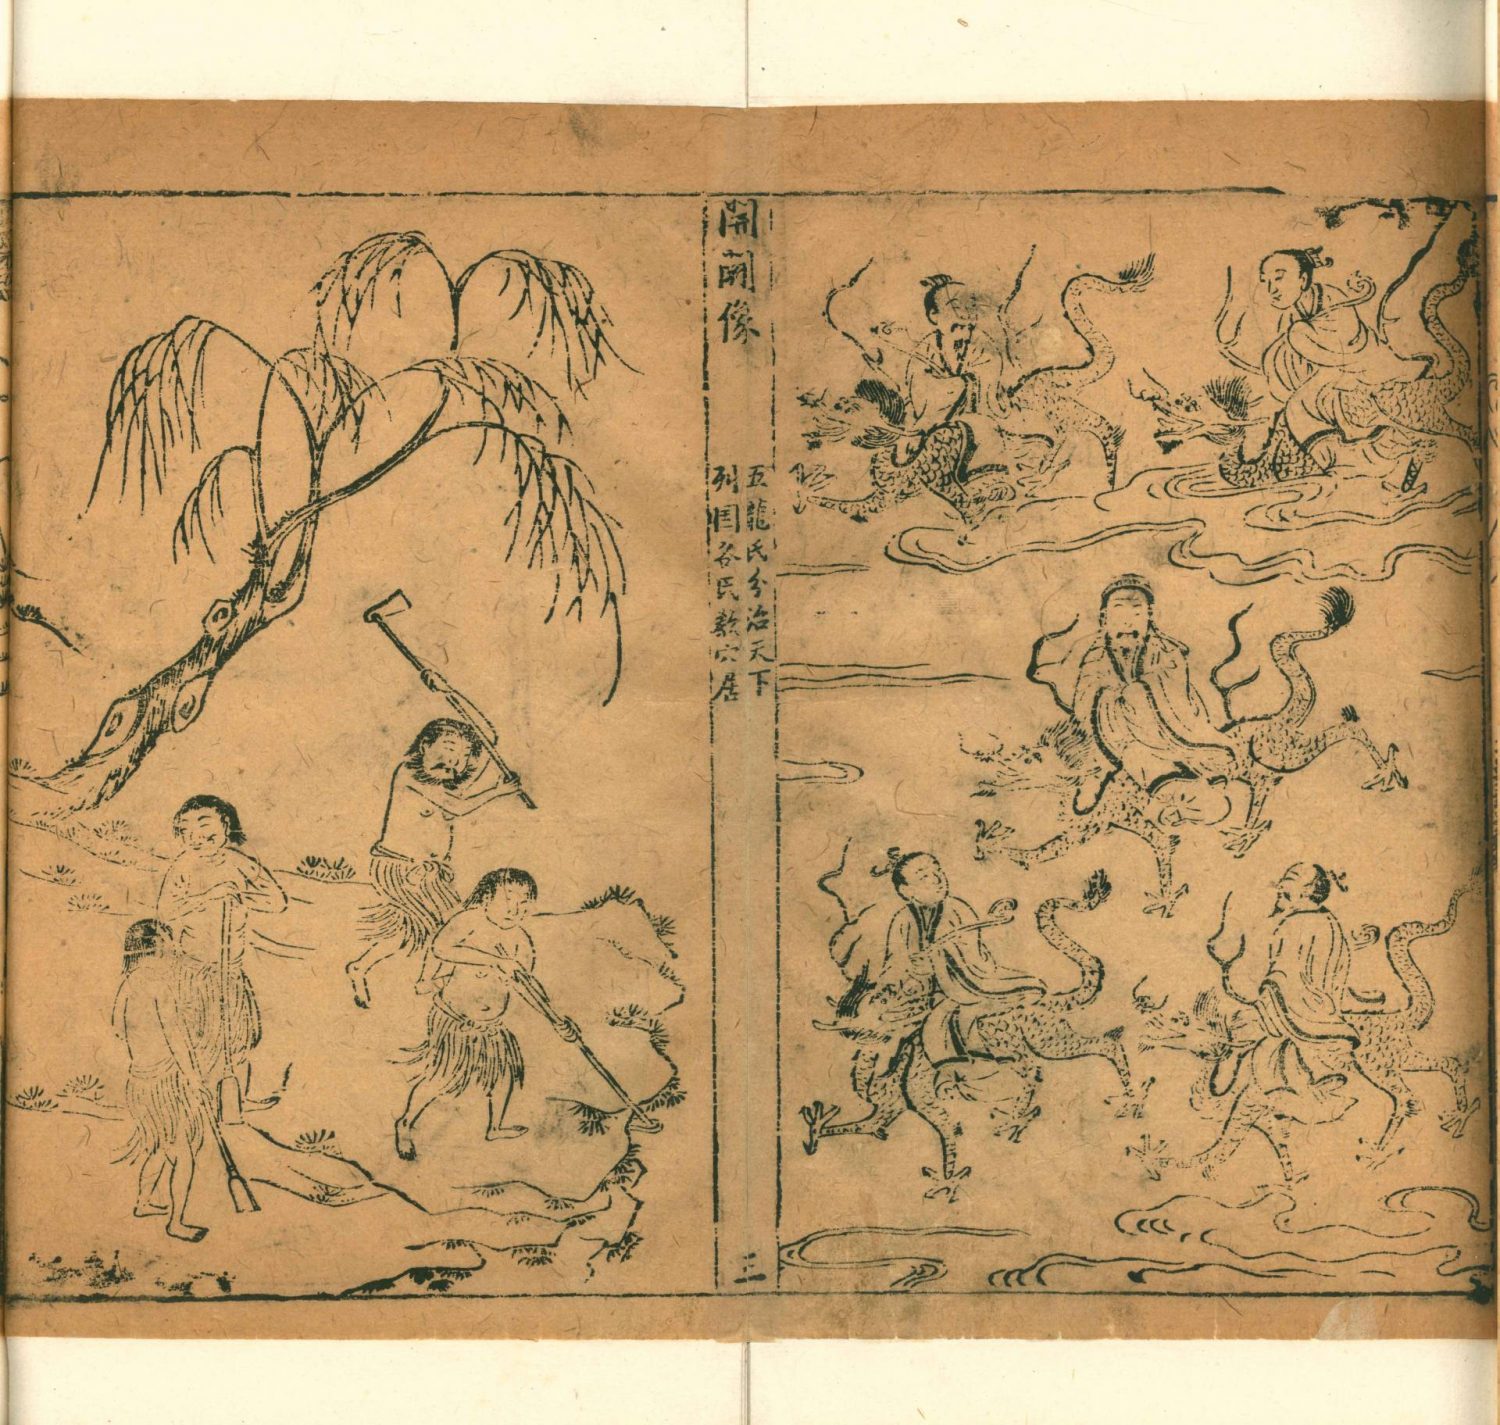 開闢像
五龍氏分治天下
列囯各民教穴居
三